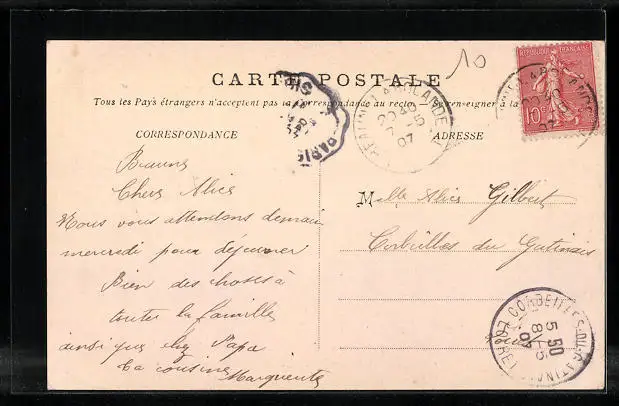 10
CARTE POSTALE
Tous les Pays étrangers n'acceptent pas la correspondance au recto — Se renseigner à la
RÉPUBLIQUE FRANÇAISE
10
PARIS
BEAUNE LA ROLANDE
20 35
07
CORRESPONDANCE
ADRESSE
Beaune
Chere Alice
Nous vous attendons demain
mercredi pour déjeuner
Bien des choses à
toute la famille
ainsi que chez Papa
ta cousine
Marguerite
Mlle Alice Gilbert
Corbeilles du Gatinais
Loiret
CORBEILLES-DU-GATINAIS
5 50
8 5
07
LOIRET